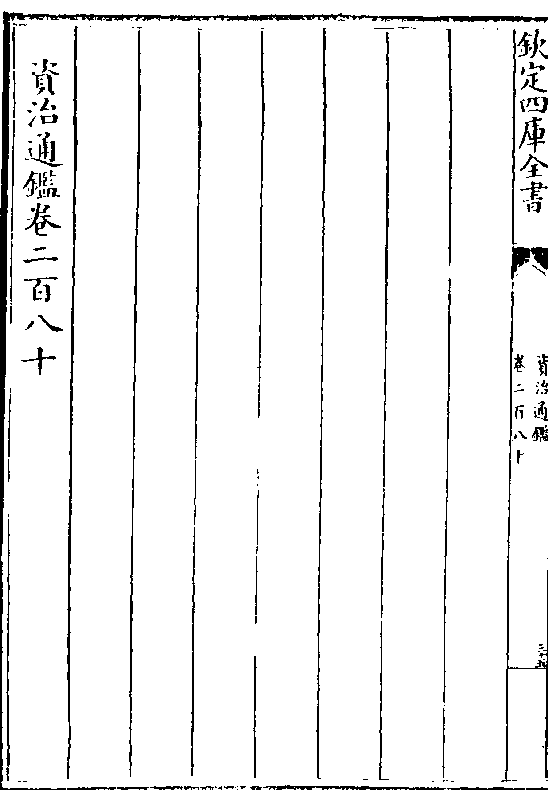 欽定四庫全書
資治通鑑
卷二百八十
資治通鑑卷二百八十